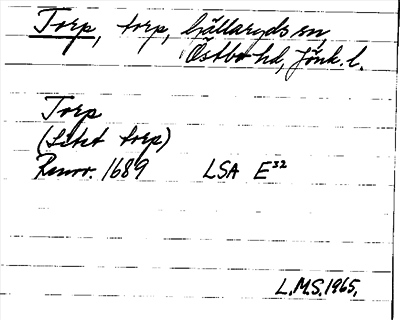 Torp, torp, Källaryds sn,
Östbo hd, Jönk. l.
Torp
(Litet torp)
Renov. 1689 LSA E³²
L.M.S. 1965.